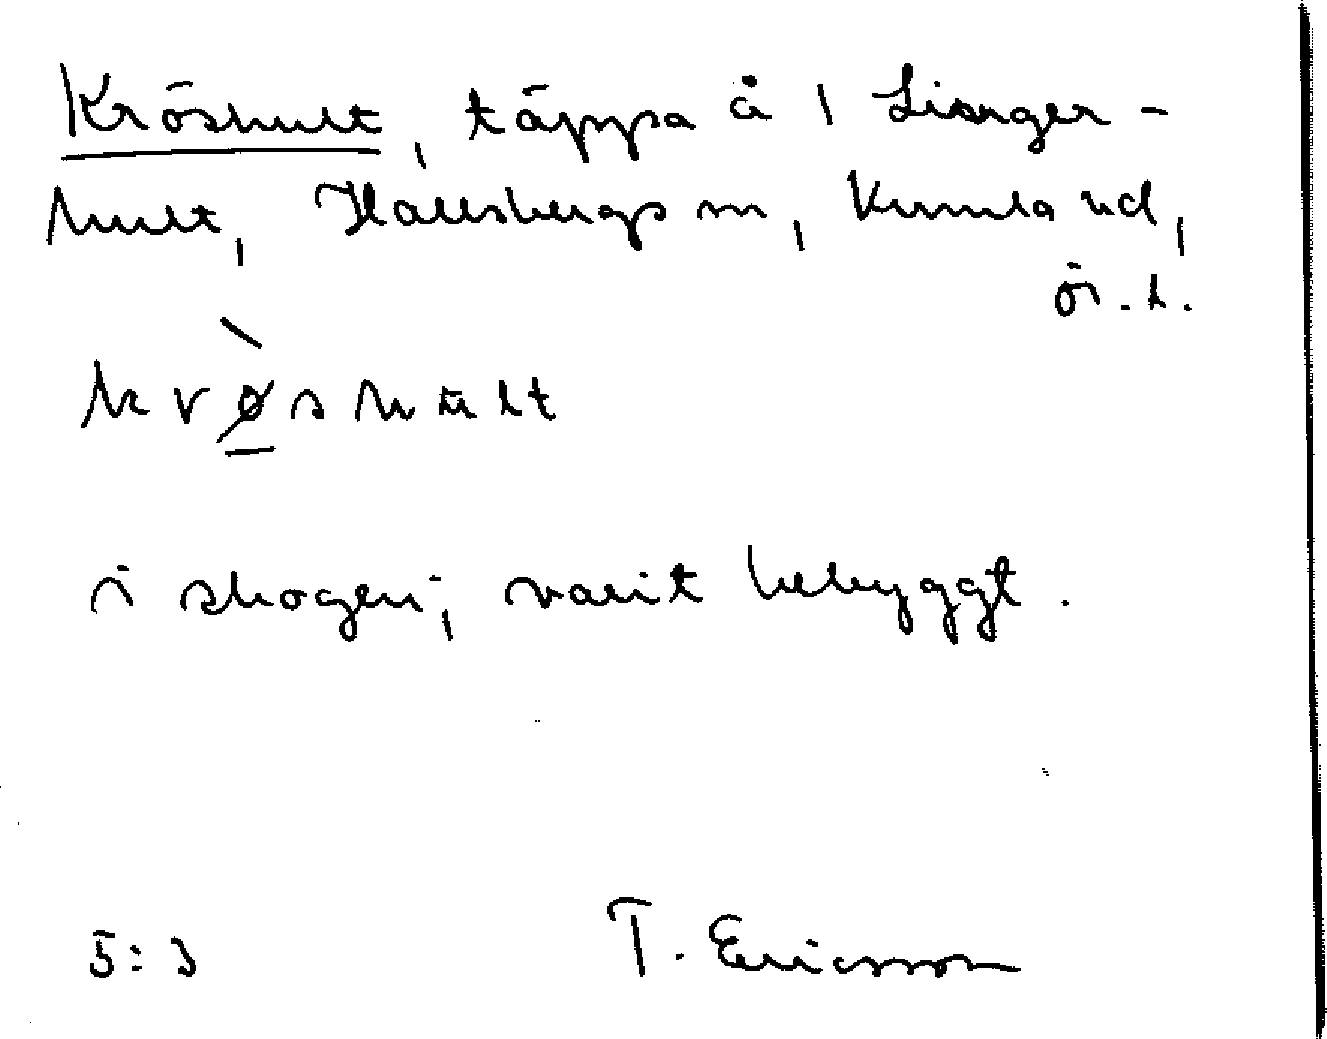 Kröshult, täppa å 1 Linger-
hult, Hallsbergs sn, Kumla hd,
ör. l.
krø̀shult
i skogen; varit bebyggt.
5:3 T. Ericsson